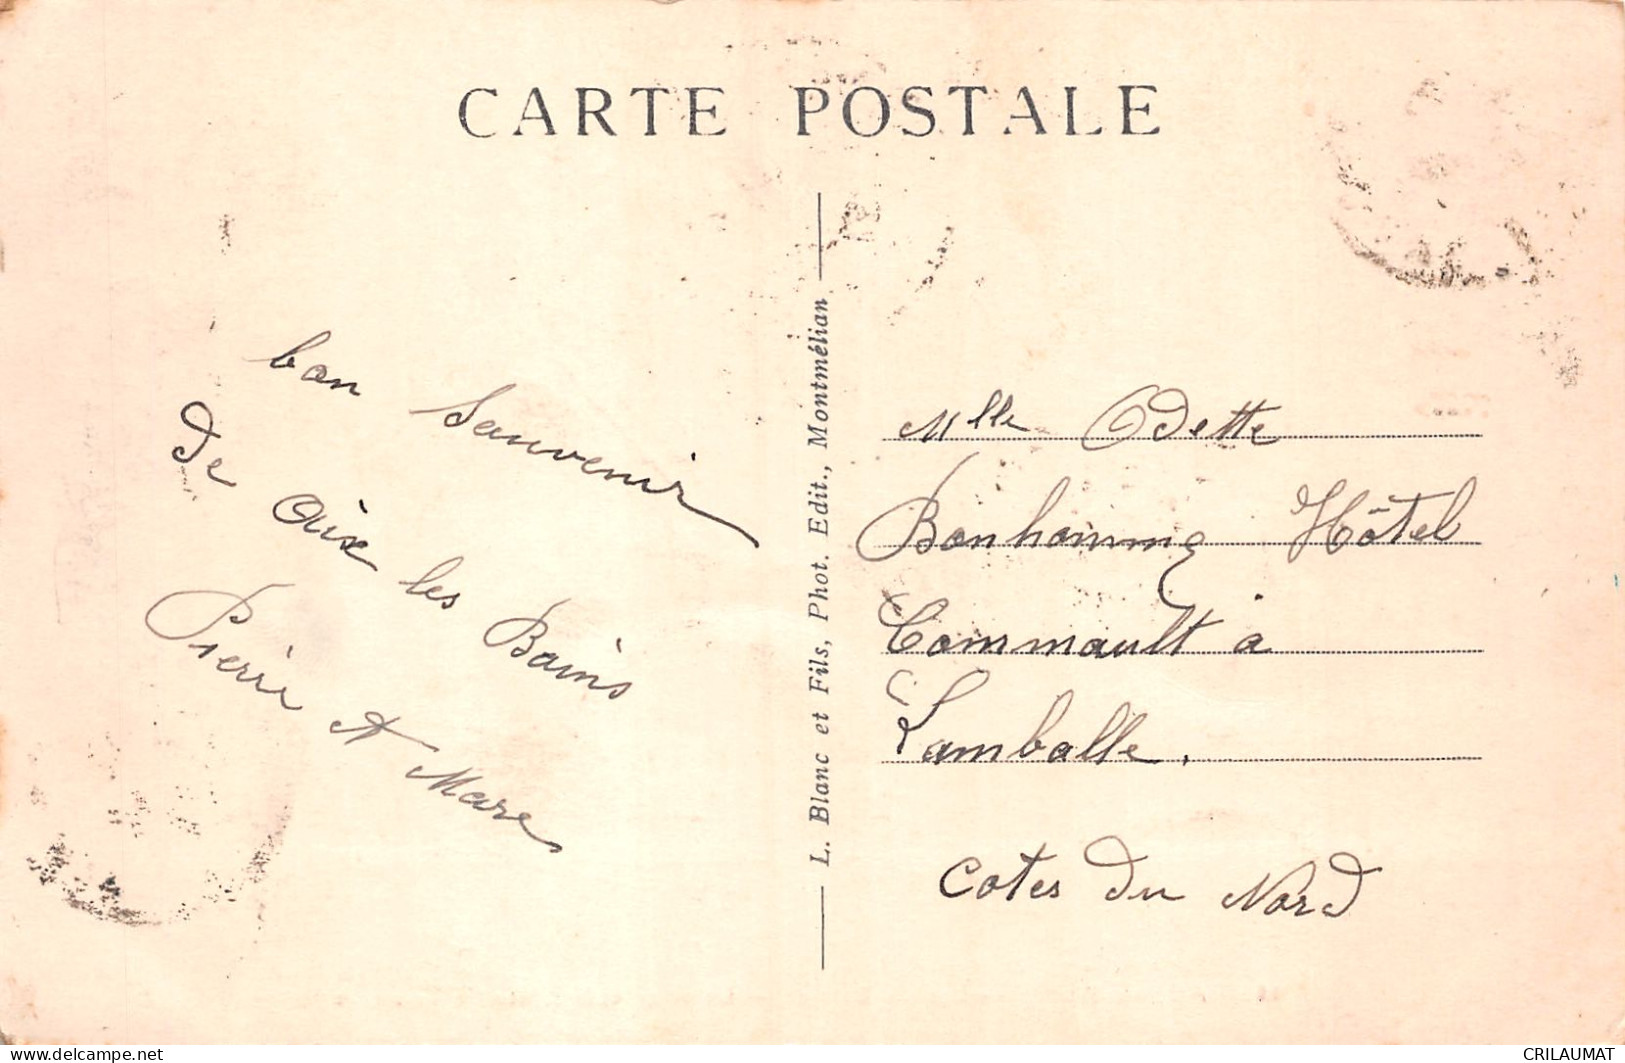 CARTE POSTALE
bon Souvenir
de aix les Bains
Pierre A Mare
L. Blanc et Fils, Phot. Edit., Montmélian
Mlle Odette
Bonhomme Hôtel
Commault a
Lamballe.
Cotes du Nord
www.delcampe.net
CRILAUMAT